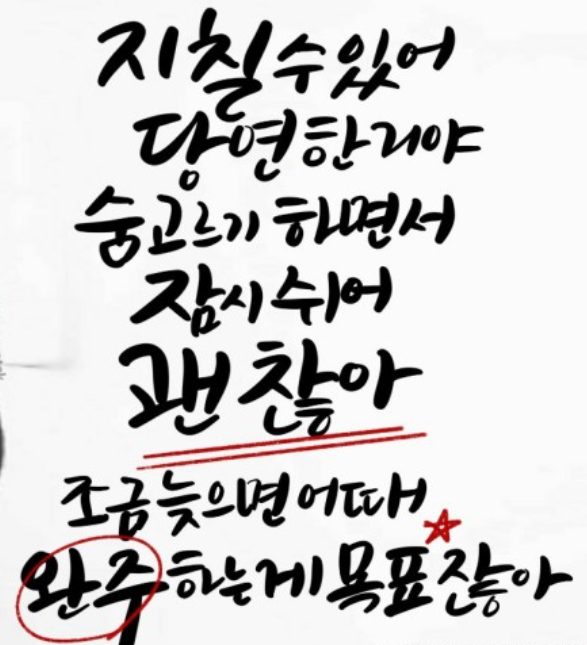 지칠 수 있어
당연한 거야
숨고르기 하면서
잠시 쉬어
괜찮아
조금 늦으면 어때
완주하는게 목표잖아